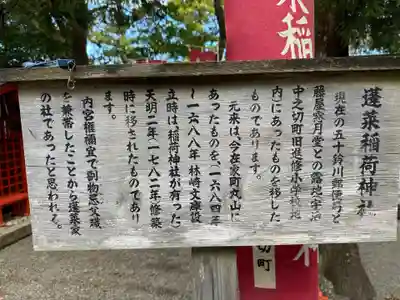 蓬莱稲荷神社
現在の五十鈴川郵便局と
藤屋窓月堂との露地、宇治
中之切町旧進修小学校地
内にあったものを移した
ものであります。
元来は、今在家町丸山に
あったものを、一六八四年
〜一六八八年林崎文庫設
立時は稲荷神社が有った
天明二年一七八二年修築
時に移されたものであり
ます。
内宮権禰宜で
を兼帯したことから蓬莱家
の社であったと思われる。
稲
切町